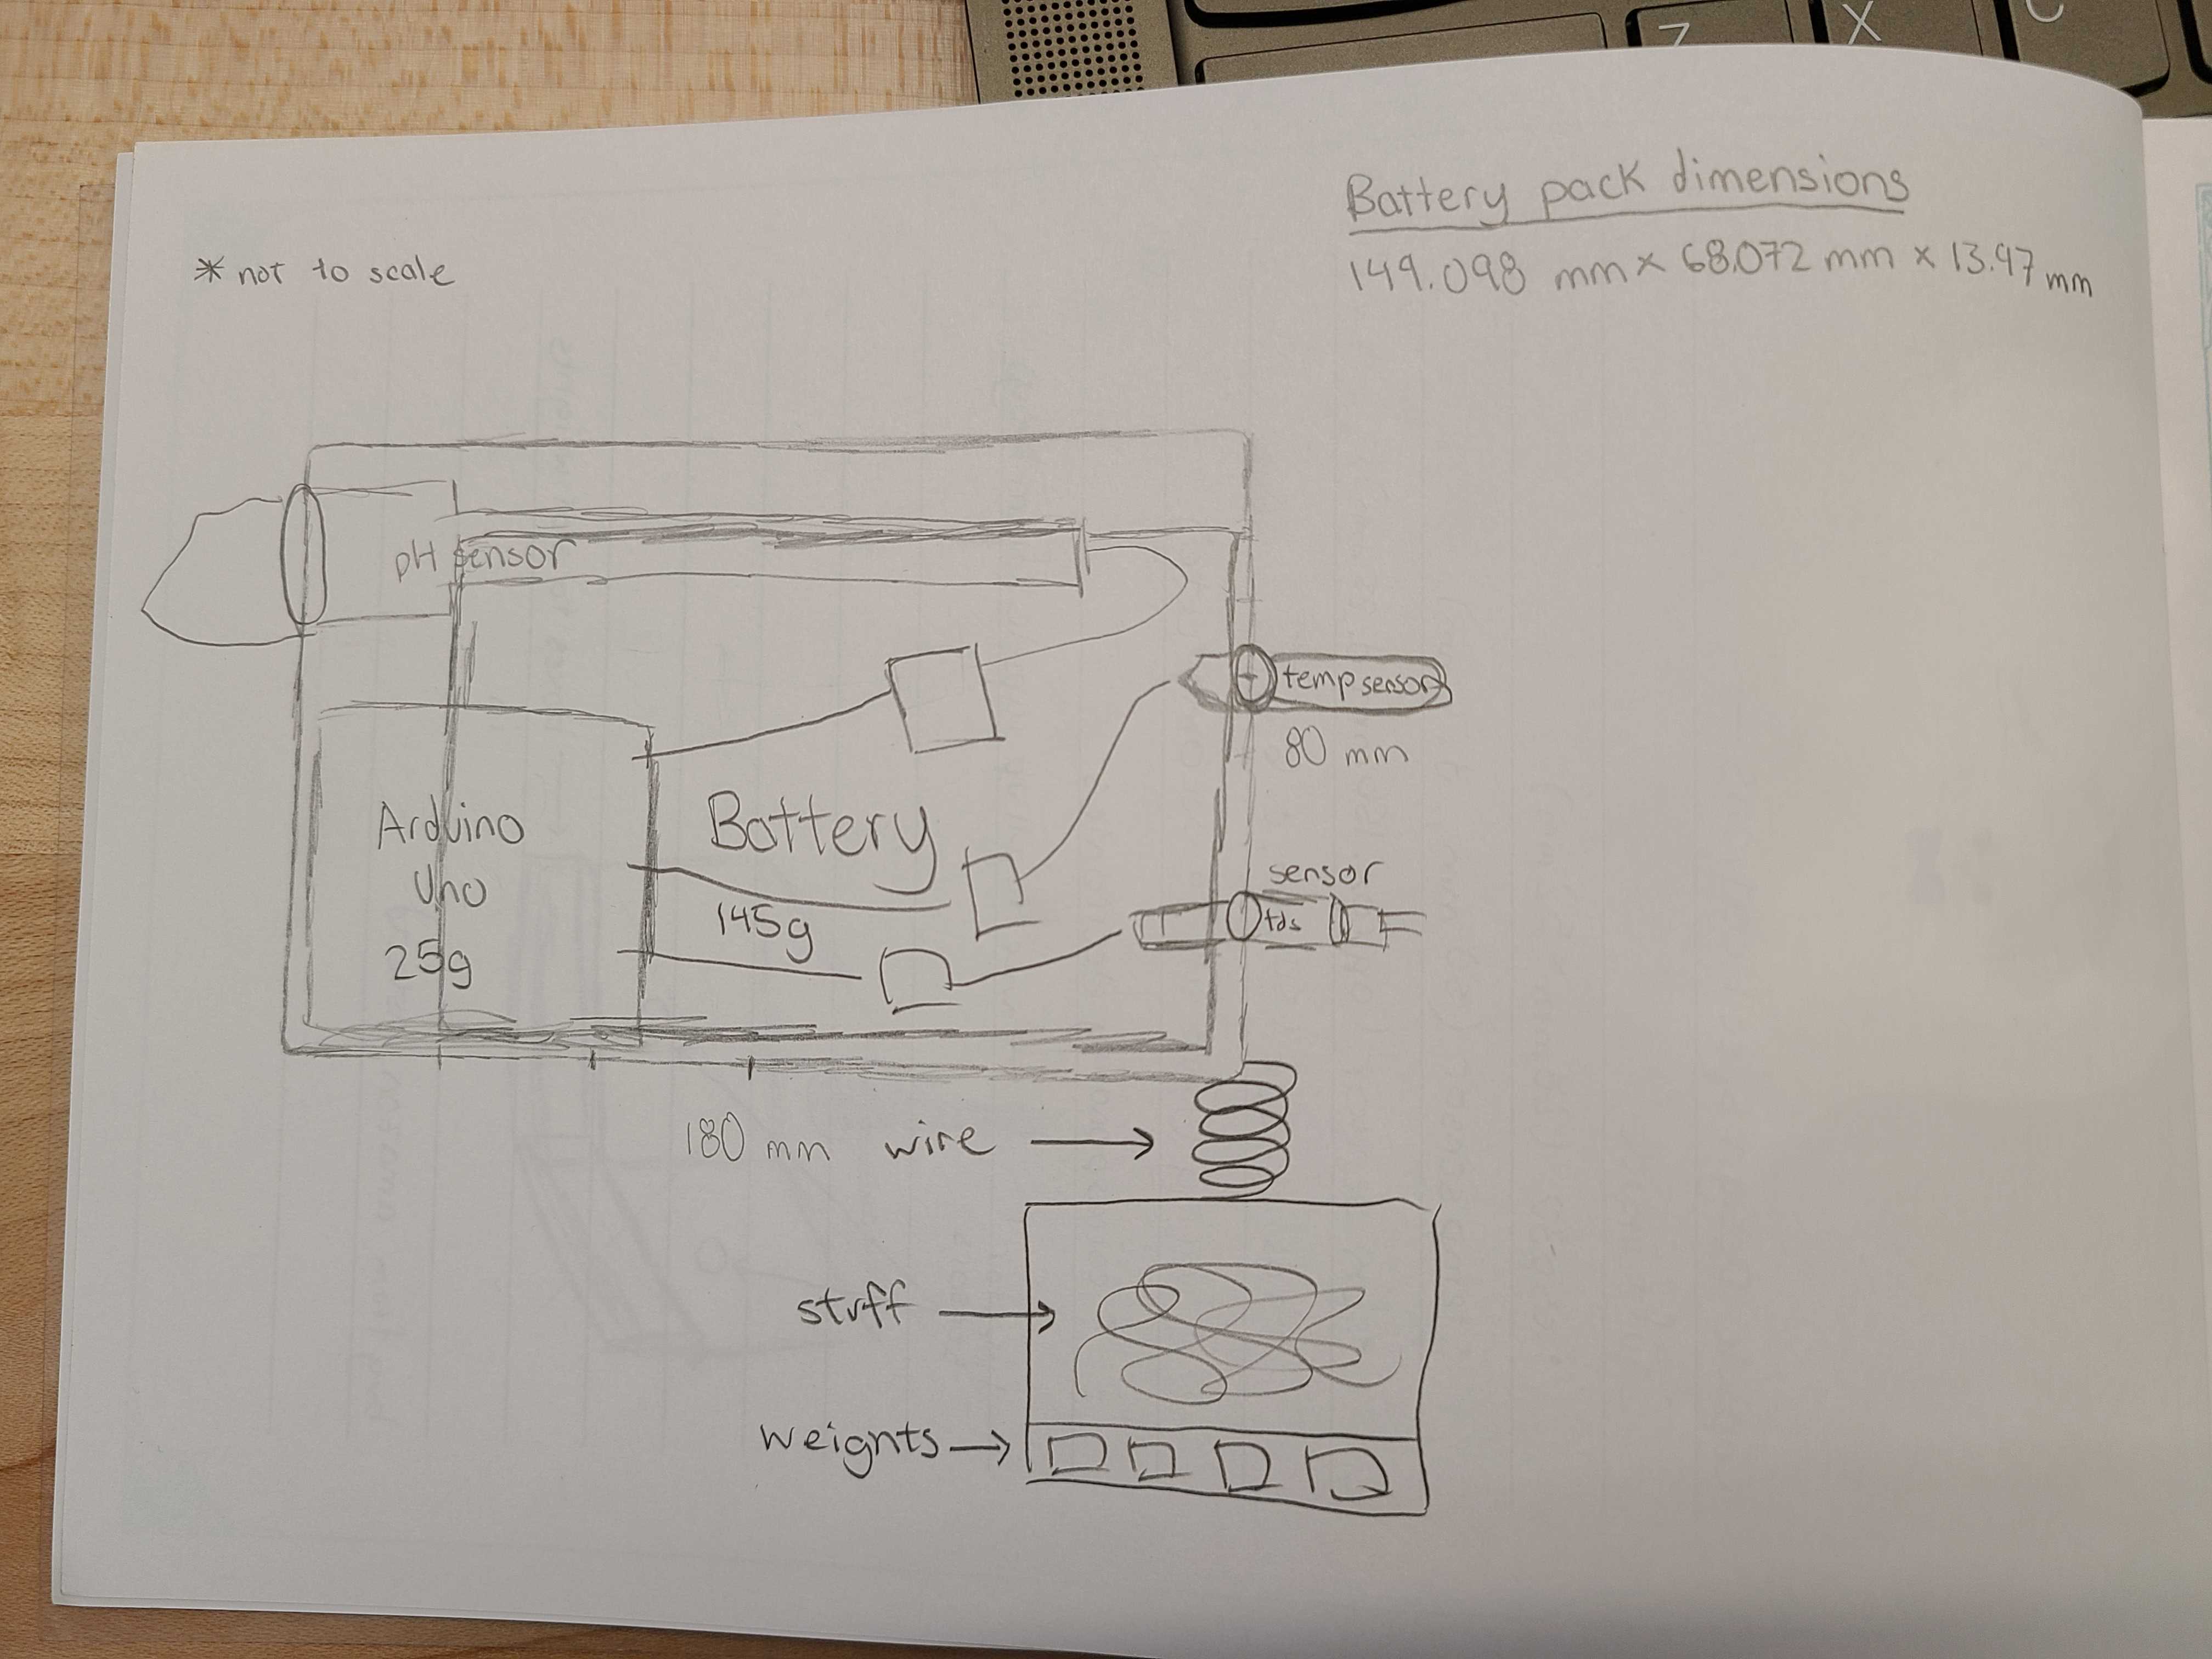 Z X C
Battery pack dimensions
149.098 mm x 68.072 mm x 13.97 mm
* not to scale
pH sensor
temp sensor
80 mm
Arduino
Uno
25g
Battery
145g
sensor
tds
180 mm wire
stuff
weights